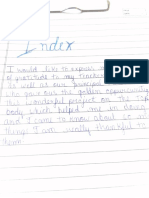 Index
I would like to express my
of gratitude to my teacher
As well as our principal
who gave me the golden opportunity
this wonderful project on the
body which helped me in doing
and I came to know about so
things I am really thankful to
them